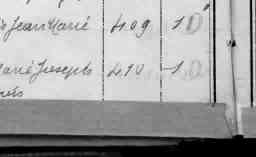 Jean Marie 409 1 D
Marie Joseph 410 1 D